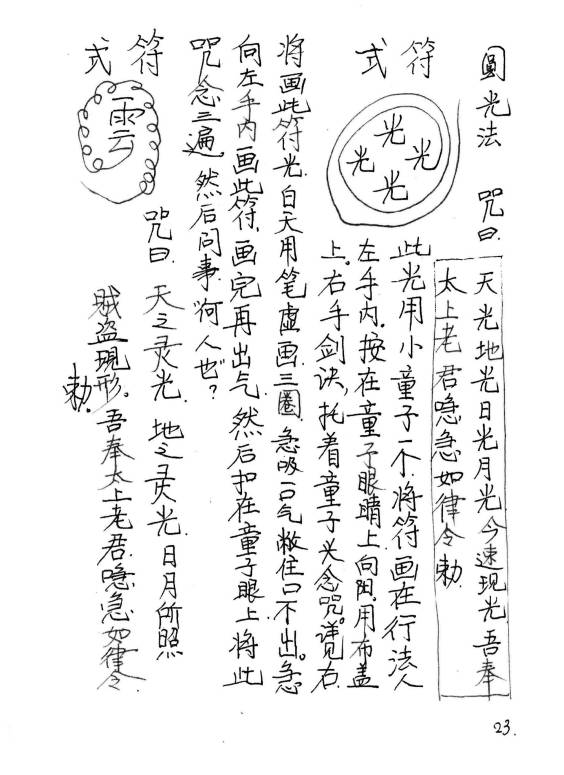 圓光法 咒曰.
天光地光日光月光今速現光吾奉
太上老君噫急如律令勅.
符式
光
光
光
光
此光用小童子一个.将符画在行法人
左手内.按在童子眼睛上向阳.用布盖
上。右手剑诀,托着童子头念咒。见右
将画此符光.白天用笔虚画三圈.急吸一口气敝住口不出。急
向左手内画此符.画完再出气.然后扣在童子眼上将此
咒念三遍.然后问事.何人也?
符式
雲
咒曰.天之灵光.地之灵光.日月所照
贼盗現形。吾奉太上老君.噫急如律令
勅.
23.